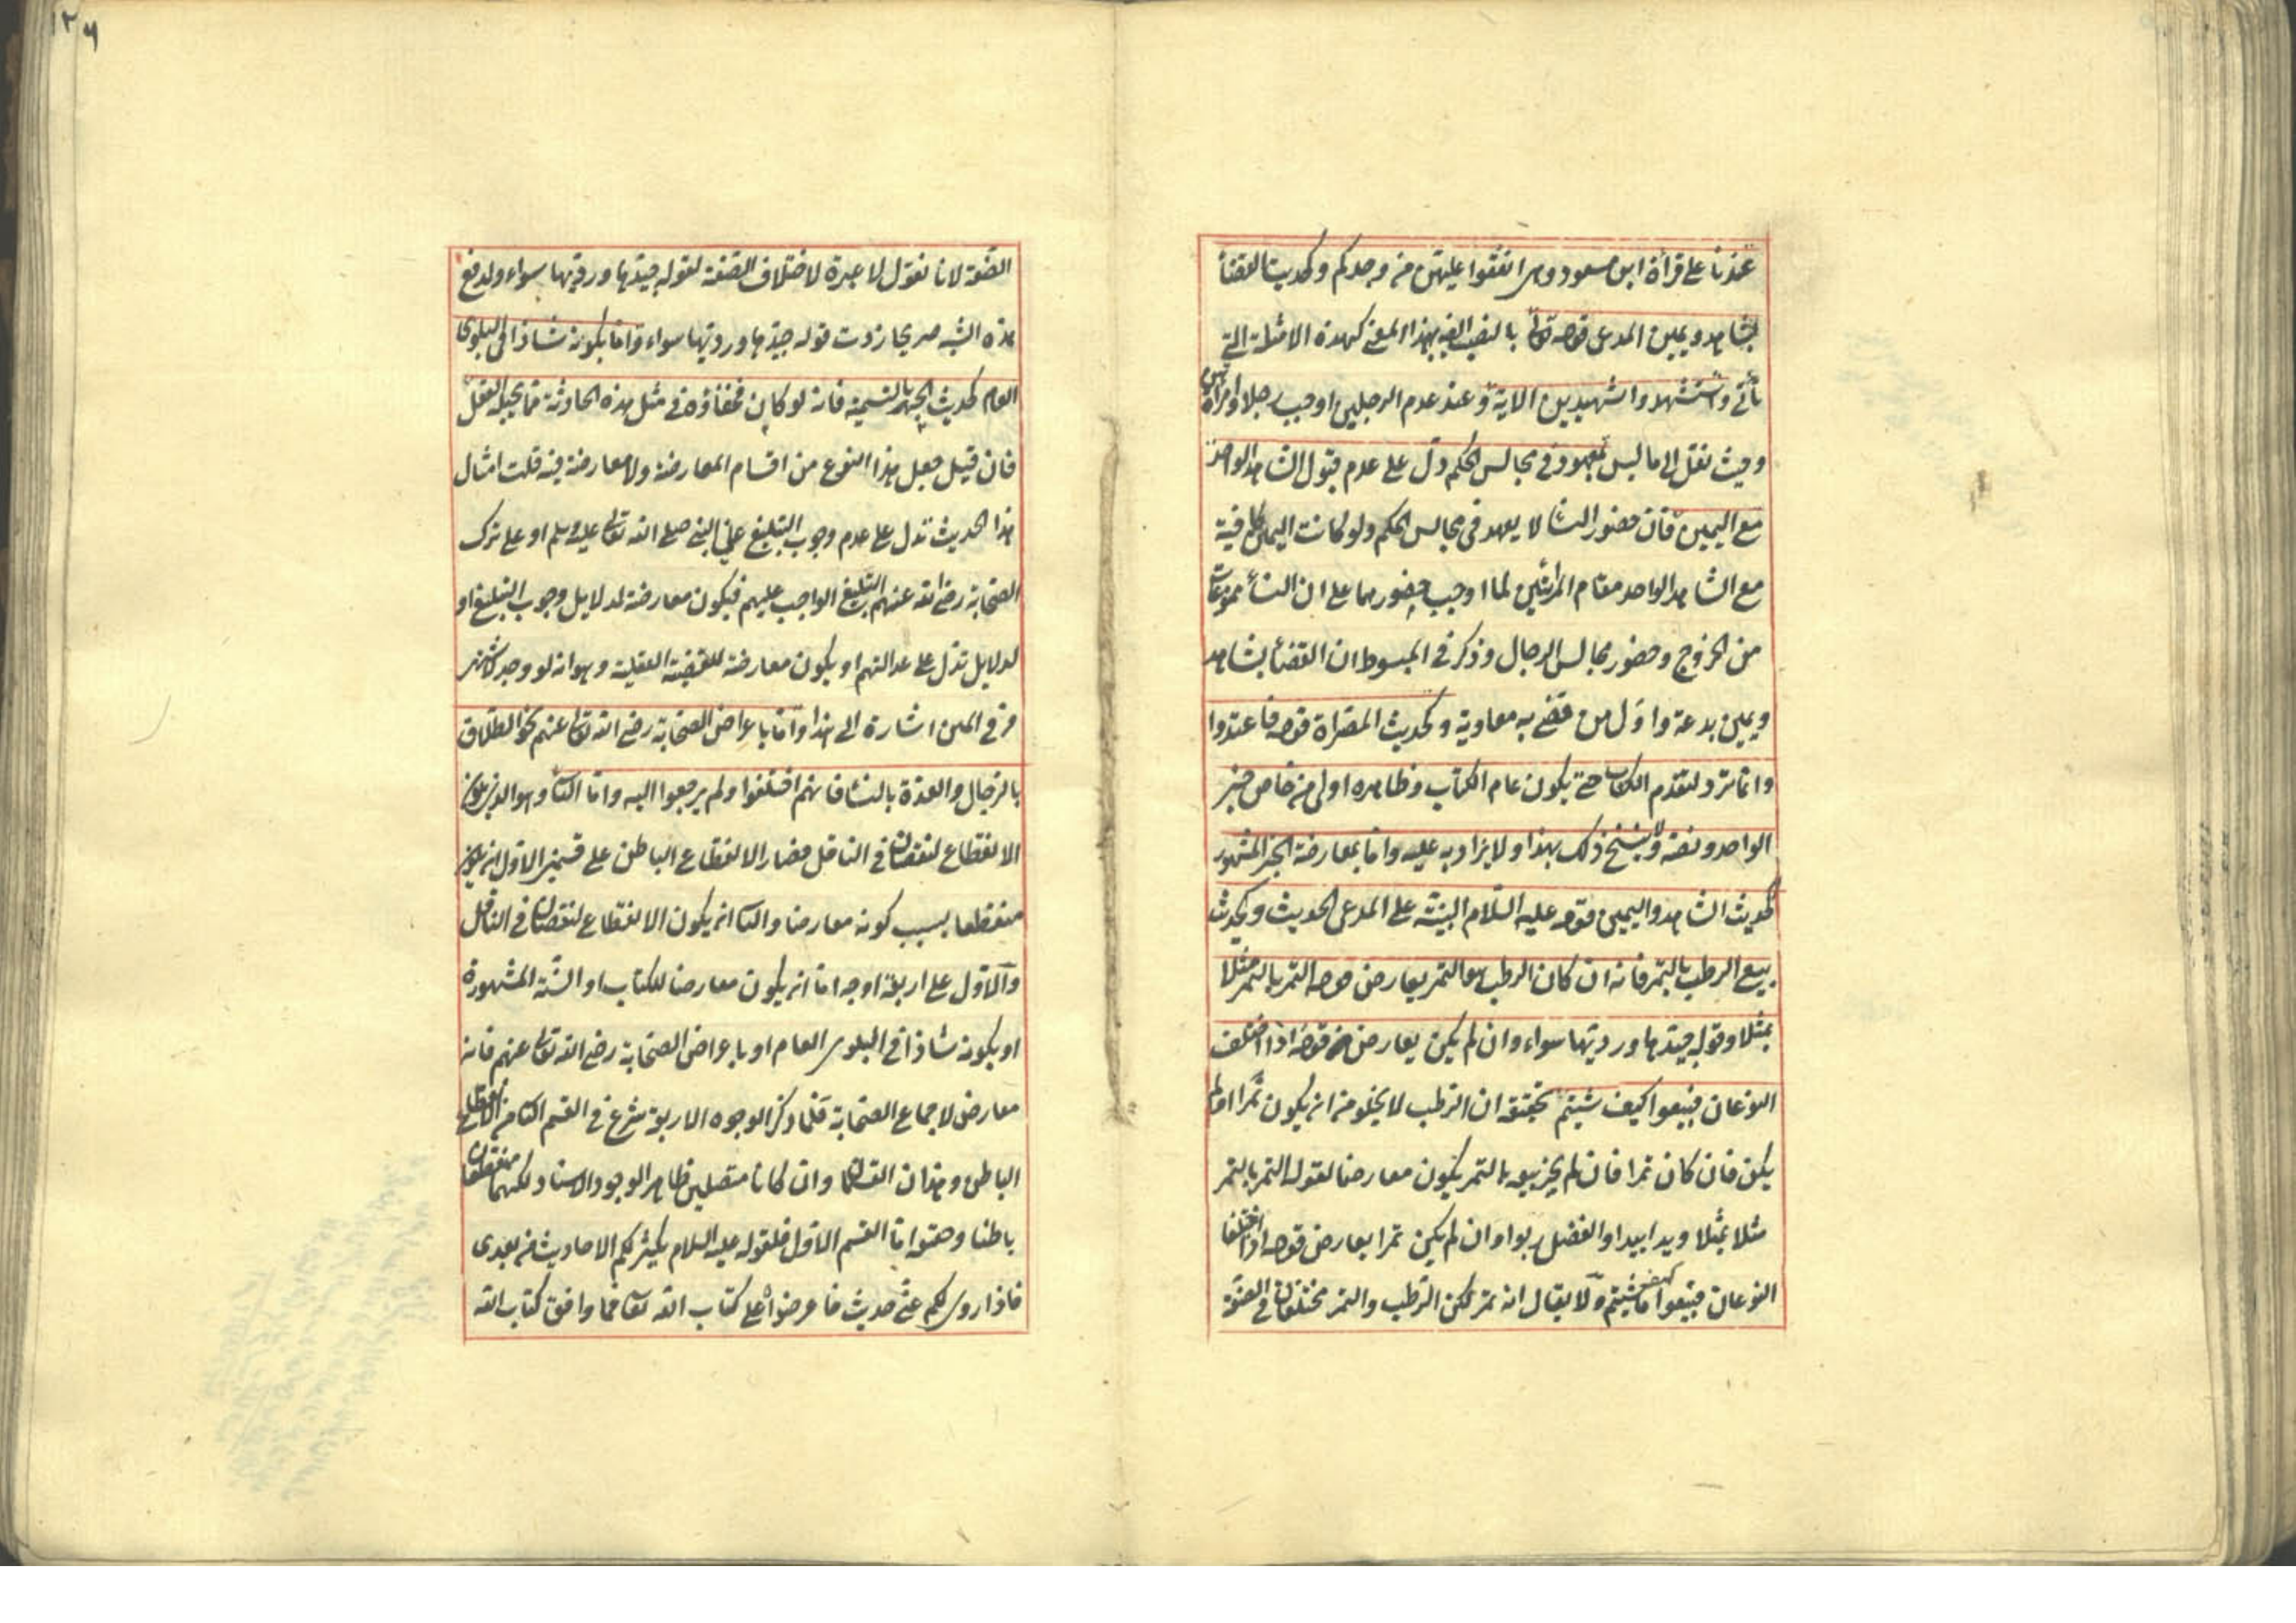 عندنا على قرأة ابن مسعود وهي انفقوا عليهن من وجدكم وكحديث القضأ
بشاهد ويمين المدعي قوله تعالى بالنصب بهذا المعنى كهذه الامثلة التي
تأتي واستشهدوا شهيدين الاية وعند عدم الرجلين اوجب رجلا وامرأتين
وحيث نقل الى ما ليس بمعهود في مجالس الحكم دل على عدم قبول الشاهد الواحد
مع اليمين فان حضور النسا لا يعهد في مجالس الحكم ولو كانت اليمين كافية
مع الشاهد الواحد مقام المرأتين لما اوجب حضورهما على ان النسأ ممنوعات
من الخروج وحضور مجالس الرجال وذكر في المبسوط ان القضأ بشاهد
ويمين بدعة واول من قضى به معاوية وكحديث المصراة قوله فاعتدوا
وانما ترد لتقدم الكتاب حتى يكون عام الكتاب وظاهره اولى من خاص خبر
الواحد ونصه ولا ينسخ ذلك بهذا ولا يزاد به عليه واما بمعارضة الخبر المشهور
كحديث الشاهد واليمين قوله عليه السلام البينة على المدعي الحديث وكحديث
بيع الرطب بالتمر فانه ان كان الرطب هو التمر يعارض قوله التمر بالتمر مثلا
بمثل وقوله جيدها ورديها سواء وان لم يكن يعارض قوله اذا اختلف
النوعان فبيعوا كيف شيتم تحقيقه ان الرطب لا يخلو من ان يكون تمرا او لم
يكن فان كان تمرا فان لم يجز بيعه بالتمر يكون معارضا لقوله التمر بالتمر
مثلا بمثل ويدا بيد والفضل ربوا وان لم يكن تمرا يعارض قوله اذا اختلفا
النوعان فبيعوا كيف شيتم ولا يقال انه تمر لكن الرطب والتمر مختلفان في الصفة
الصفة لانا نقول لا عبرة لاختلاف الصفة لقوله جيدها ورديها سواء ولدفع
هذه الشبه صريحا زدت قوله جيدها ورديها سواء واما بكونه شاذا في البلوى
العام كحديث الجهر بالتسمية فانه لو كان فخفاؤه في مثل هذه الحادثة مما يحيله العقل
فان قيل جعل هذا النوع من اقسام المعارضة ولا معارضة فيه قلت امثال
هذا الحديث تدل على عدم وجوب التبليغ على النبي صلى الله تعالى عليه وسلم او على ترك
الصحابة رضي الله عنهم التبليغ الواجب عليهم فيكون معارضة لدلايل وجوب التبليغ او
لدلايل تدل على عدالتهم او يكون معارضة للقضية العقلية وهو انه لو وجد لاشتهر
وفي المتن اشارة الى هذا واما باعراض الصحابة رضي الله تعالى عنهم نحو الطلاق
بالرجال والعدة بالنسا فانهم اختلفوا ولم يرجعوا اليه واما الثا وهو الذي يكون
الانقطاع لنقصان في الناقل فصار الانقطاع الباطن على قسمين الاول ان يكون
منقطعا بسبب كونه معارضا والثا ان يكون الانقطاع لنقصان في الناقل
والاول على اربعة اوجه اما ان يكون معارضا للكتاب او السنة المشهورة
او بكونه شاذا في البلوى العام او باعراض الصحابة رضي الله تعالى عنهم فانه
معارض لاجماع الصحابة فلما ذكر الوجوه الاربعة شرع في القسم الثا من الانقطاع
الباطن وهذان القسمان وان كانا متصلين ظاهرا لوجود الاسناد لكنهما منقطعان
باطنا وحقيقة اما القسم الاول فلقوله عليه السلام يكثر لكم الاحاديث من بعدي
فاذا روي لكم عني حديث فاعرضوا على كتاب الله تعالى فما وافق كتاب الله